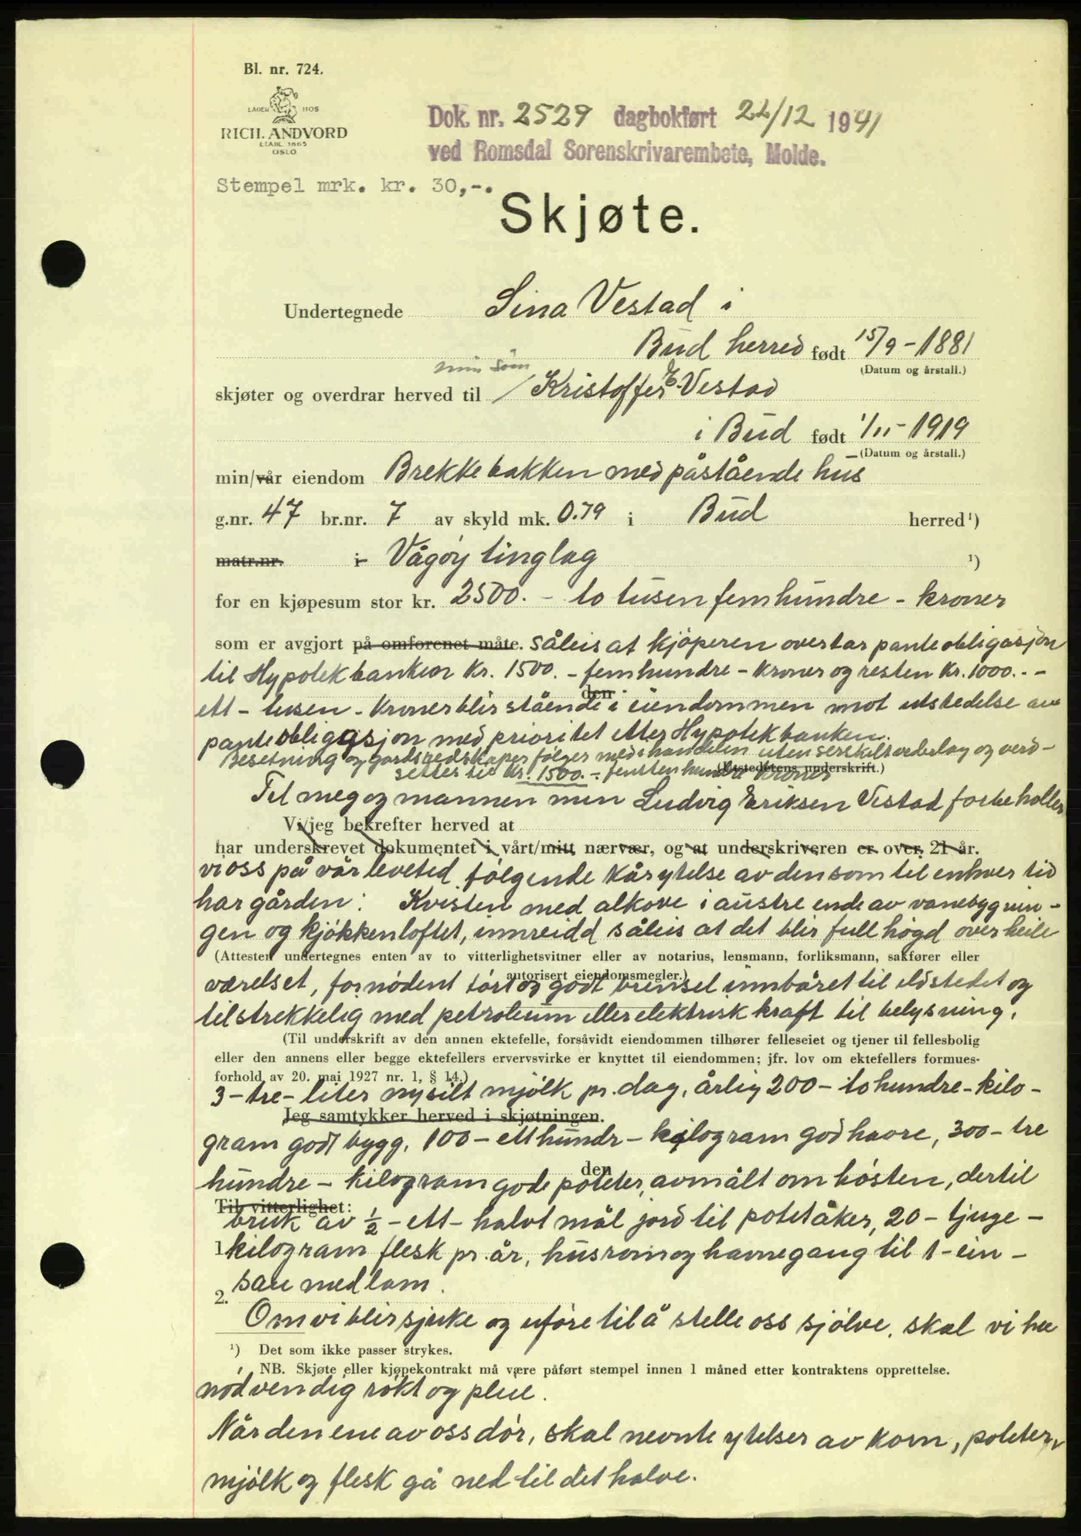 Bl. nr. 724.
LAGER HOS
RICH. ANDVORD
ETABL. 1865
OSLO
Dok. nr. 2529 dagbokført 22/12 1941
ved Romsdal Sorenskrivarembete, Molde.
Stempel mrk. kr. 30,-.
Skjøte.
Undertegnede Sina Vestad i
Bud herred født 15/9-1881
(Datum og årstall.)
min søn
skjøter og overdrar herved til Kristoffer Vestad
i Bud født 1/11-1919
(Datum og årstall.)
min/vår eiendom Brekkebakken med påstående hus
g.nr. 47 br.nr. 7 av skyld mk. 0.79 i Bud herred¹)
matr.nr. i Vågøy tinglag ¹)
for en kjøpesum stor kr. 2500. - to tusen femhundre - kroner
som er avgjort på omforenet måte. såleis at kjøperen overtar panteobligasjon
til Hypotekbanken kr. 1500. - femhundre - kroner og resten kr. 1000. - -
ett - tusen - kroner blir stående i eiendommen mot utstedelse av
den
panteobligasjon med prioritet etter Hypotekbanken.
Besetning og gardsredskaper følger med handelen uten serskilt avbetaling og verd-
settes til kr. 1500. - femten hundre kroner
(Utstederens underskrift.)
Til meg og mannen min Ludvig Eriksen Vestad forbeholler
Vi/jeg bekrefter herved at
har underskrevet dokumentet i vårt/mitt nærvær, og at underskriveren er over 21 år.
vi oss på vår levetid følgende kårytelse av den som til enhver tid
har gården: Kvisten med alkove i austre ende av vånebygnin-
gen og kjøkkenloftet, innreidd såleis at det blir full høgd over heile
(Attesten undertegnes enten av to vitterlighetsvitner eller av notarius, lensmann, forliksmann, sakfører eller
autorisert eiendomsmegler.)
værelset, fornødent tørt og godt brensel innbåret til ildstedet og
tilstrekkelig med petroleum eller elektrisk kraft til belysning,
(Til underskrift av den annen ektefelle, forsåvidt eiendommen tilhører felleseiet og tjener til fellesbolig
eller den annens eller begge ektefellers ervervsvirke er knyttet til eiendommen; jfr. lov om ektefellers formues-
forhold av 20. mai 1927 nr. 1, § 14.)
3 - tre - liter nysilt mjølk pr. dag, årlig 200 - to hundre - kilo-
Jeg samtykker herved i skjøtningen.
gram godt bygg, 100 - ett hundr - kilogram god havre, 300 - tre
hundre - kilogram gode poteter, avmålt om høsten, dertil
den
Til vitterlighet:
bruk av 1/2 - ett - halvt mål jord til potetåker, 20 - tjuge -
1. kilogram flesk pr. år, husrom og havnegang til 1 - ein -
2. sau med lam.
Om vi blir sjuke og uføre til å stelle oss sjølve, skal vi ha
¹) Det som ikke passer strykes.
NB. Skjøte eller kjøpekontrakt må være påført stempel innen 1 måned etter kontraktens opprettelse.
nødvendig røkt og pleie.
Når den ene av oss dør, skal nevnte ytelser av korn, poteter,
mjølk og flesk gå ned til det halve.